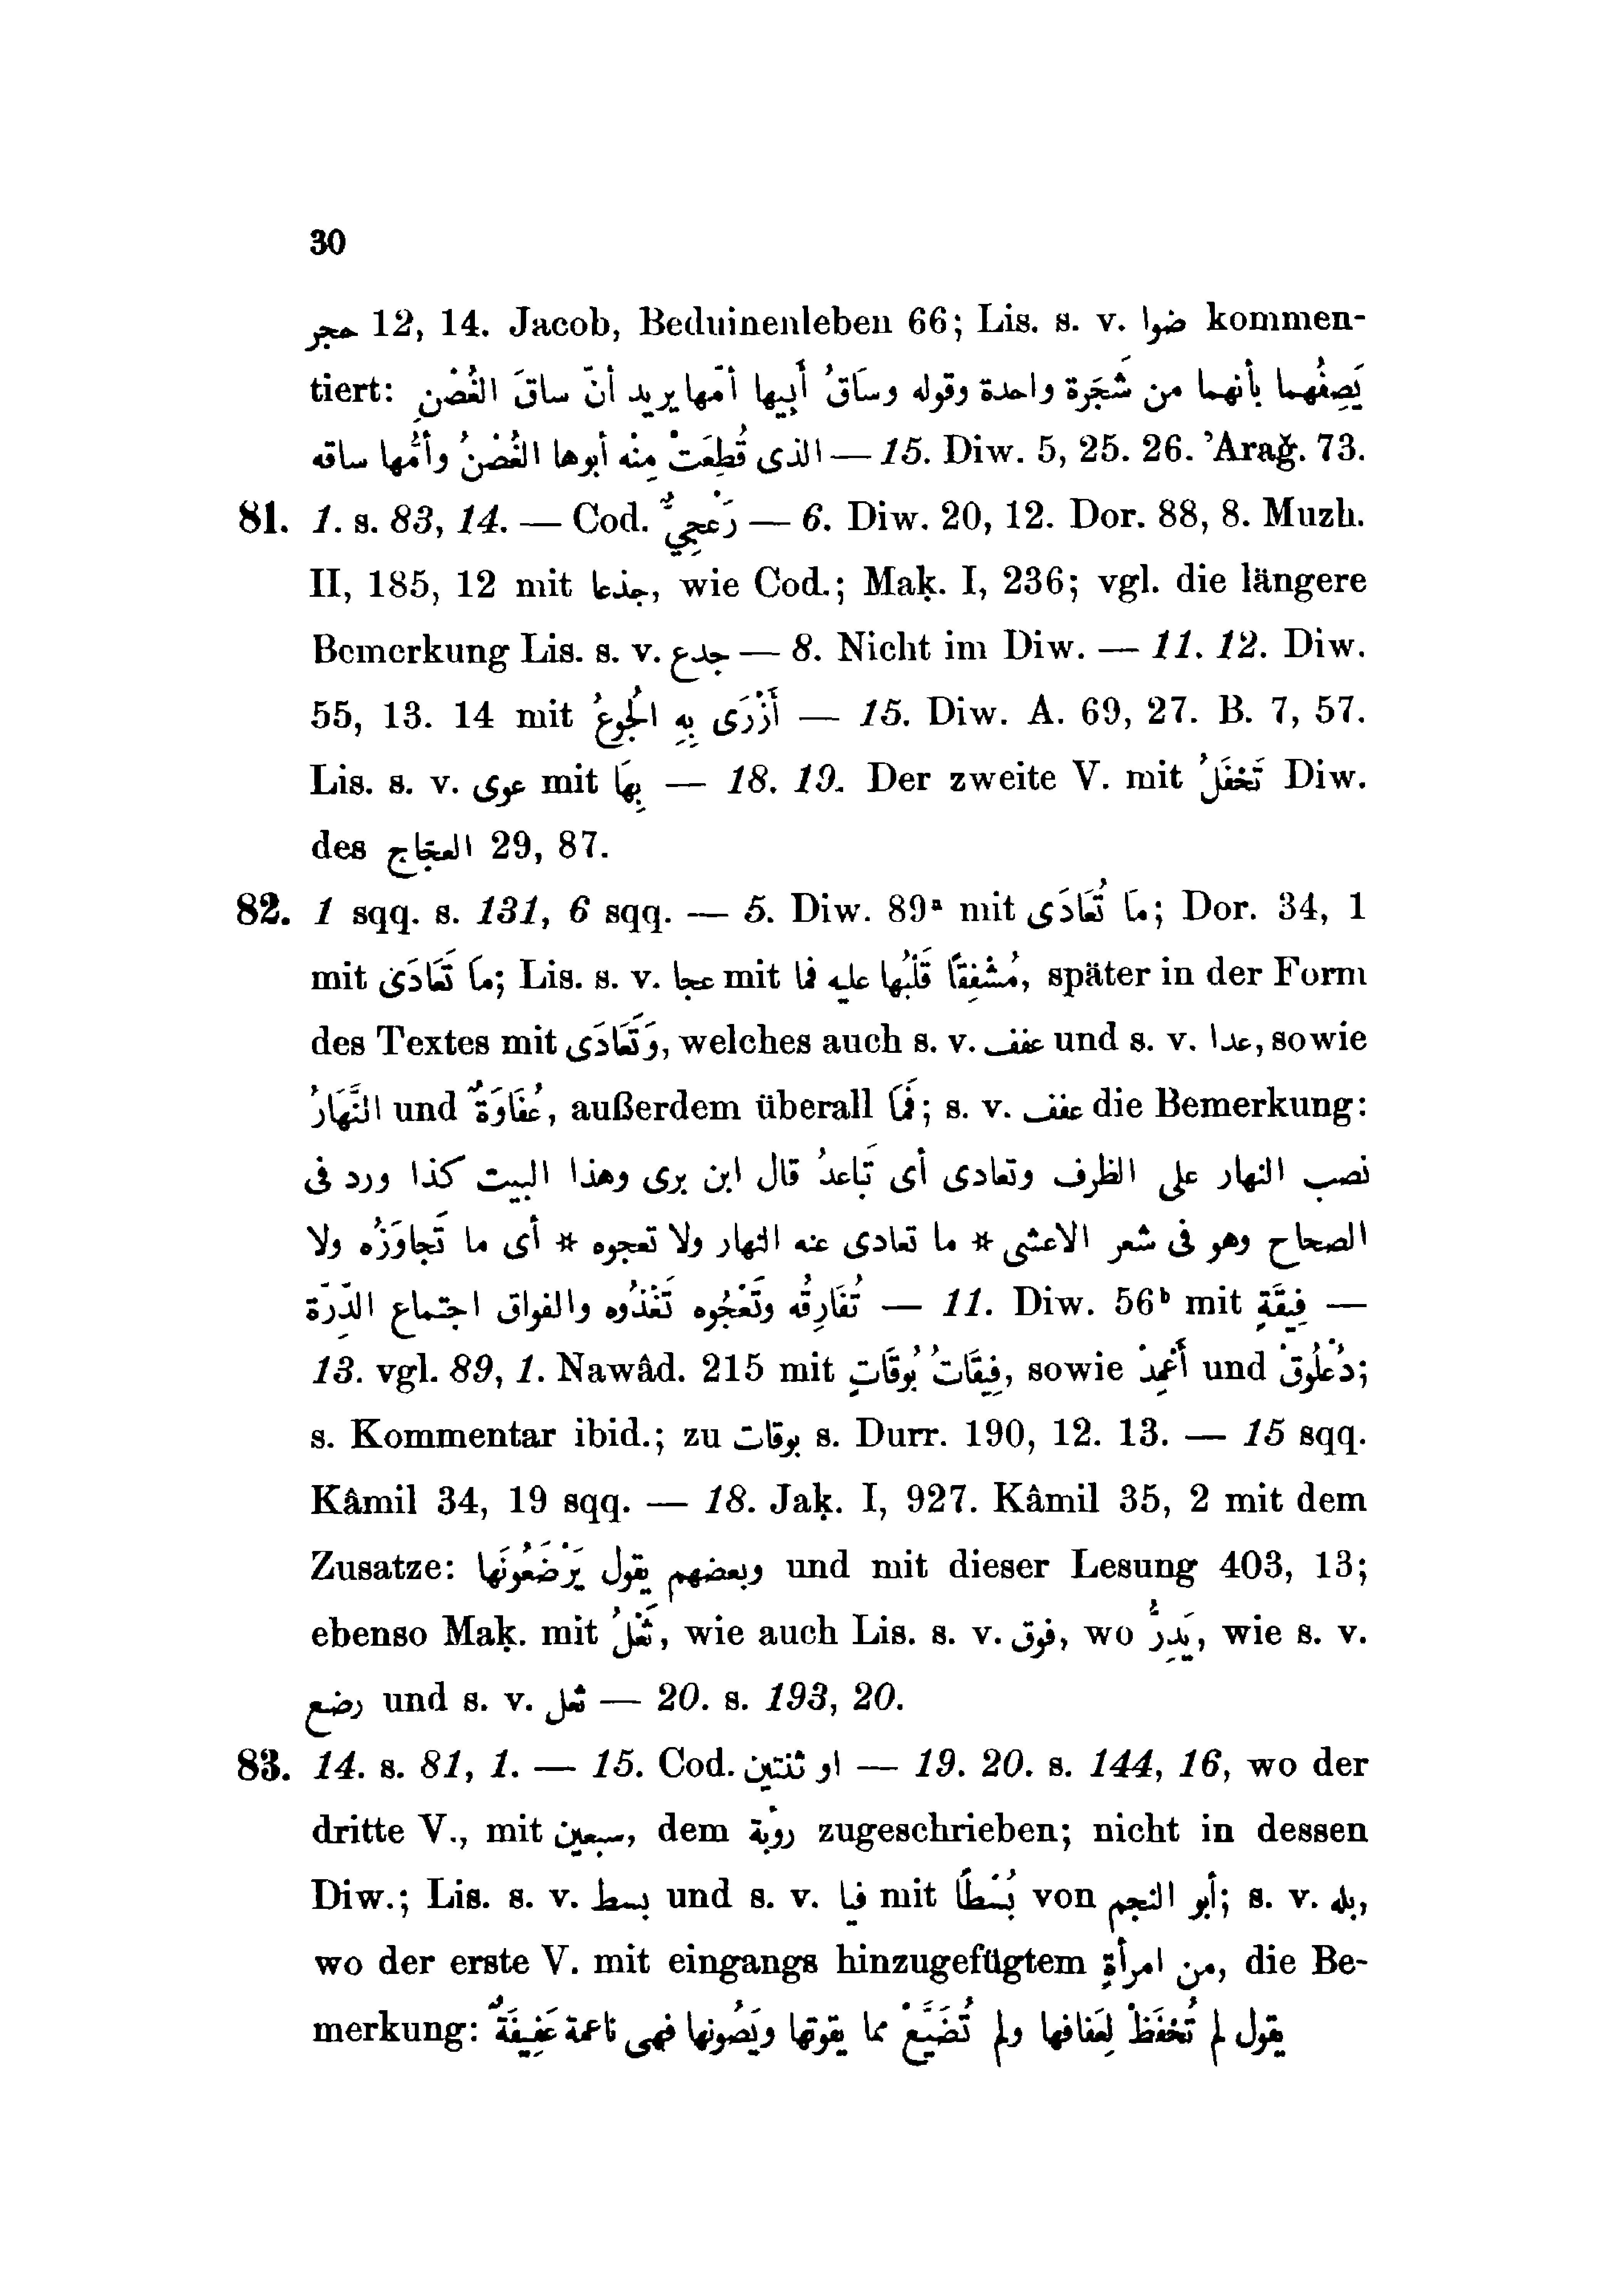 30
حجر 12, 14. Jacob, Beduinenleben 66; Lis. s. v. ضوا kommen-
tiert: يَصِفُهما بأنهما من شَجَرة واحدة وقوله وسَاقُ أَبِيها أمّها يريد أنّ ساقَ الغُصْنِ
الذى قُطِعَتْ مِنْه أبوها الغُصْنُ وأُمُّها ساقه — 15. Diw. 5, 25. 26. ’Araǧ. 73.
81. 1. s. 83, 14. — Cod. رَعْجِيٌّ — 6. Diw. 20, 12. Dor. 88, 8. Muzh.
II, 185, 12 mit جذعا, wie Cod.; Maḳ. I, 236; vgl. die längere
Bemerkung Lis. s. v. جدع — 8. Nicht im Diw. — 11. 12. Diw.
55, 13. 14 mit أَزْرَى بِهِ الجُوعُ — 15. Diw. A. 69, 27. B. 7, 57.
Lis. s. v. عوى mit بِهَا — 18. 19. Der zweite V. mit تَحْفَلُ Diw.
des العجّاج 29, 87.
82. 1 sqq. s. 131, 6 sqq. — 5. Diw. 89ª mit مَا تُعَادَى; Dor. 34, 1
mit مَا تَعَادَىٰ; Lis. s. v. عجا mit مُشْفِقًا قَلْبُها عليه فما, später in der Form
des Textes mit وَتَعَادَى, welches auch s. v. عفف und s. v. عدا, sowie
النَّهَارُ und عُفَاوَةٌ, außerdem überall فَمَا; s. v. عفف die Bemerkung:
نصب النهار على الظرف وتعادى أى تَباعدُ قال ابن برى وهذا البيت كذا ورد فى
الصحاح وهو فى شعر الاعشى * ما تعادى عنه النهار ولا تعجوه * أى ما تَجاوَزُه ولا
تُفَارِقُه وتَعْجُوه تَغْذُوه والفواق اجتماع الدِّرَة — 11. Diw. 56ᵇ mit فِيقَةٍ —
13. vgl. 89, 1. Nawâd. 215 mit فِيقَاتُ بُوقَاتٍ, sowie أَغْمِدْ und دُعْلُوقْ;
s. Kommentar ibid.; zu بوقات s. Durr. 190, 12. 13. — 15 sqq.
Kâmil 34, 19 sqq. — 18. Jaḳ. I, 927. Kâmil 35, 2 mit dem
Zusatze: وبعضهم يقول يَرْضَعُونَها und mit dieser Lesung 403, 13;
ebenso Maḳ. mit ثَعْلُ, wie auch Lis. s. v. فوق, wo يَدِرُّ, wie s. v.
رضع und s. v. ثعل — 20. s. 193, 20.
83. 14. s. 81, 1. — 15. Cod. او ثنتين — 19. 20. s. 144, 16, wo der
dritte V., mit سبعين, dem رؤبة zugeschrieben; nicht in dessen
Diw.; Lis. s. v. بسط und s. v. فيا mit بُسْطًا von أبو النجم; s. v. بله,
wo der erste V. mit eingangs hinzugefügtem من امرأةٍ, die Be-
merkung: يقول لم تُحْفَظْ لِعَفافها ولم تُضَيَّعْ مما يقوتها ويَصُونها فهى ناعمة عَفِيفَةٌ